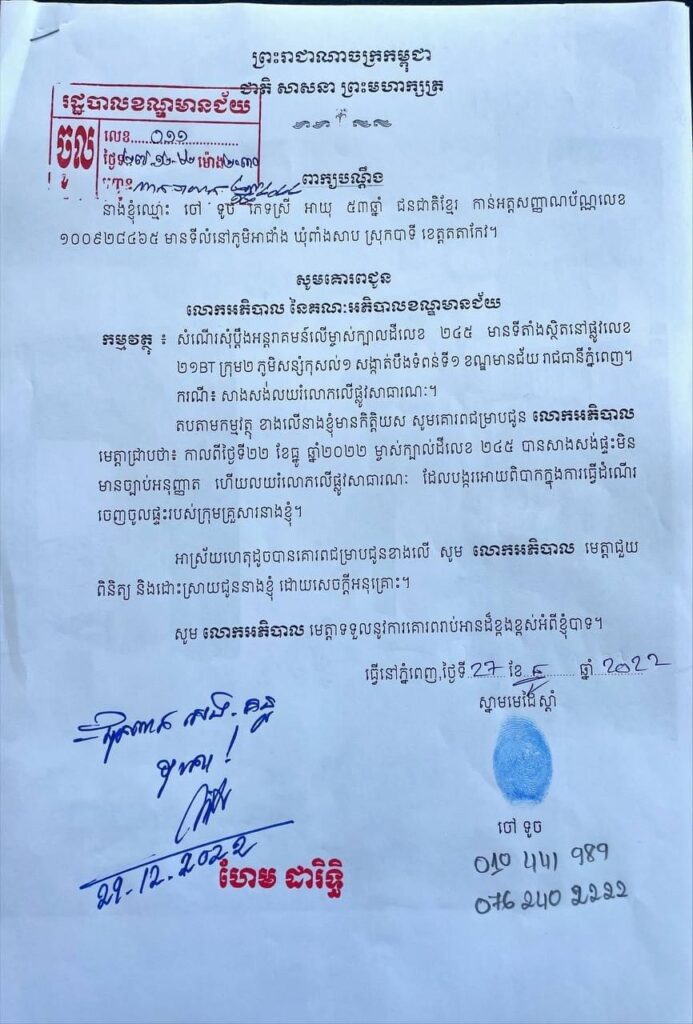 ព្រះរាជាណាចក្រកម្ពុជា
ជាតិ សាសនា ព្រះមហាក្សត្រ
រដ្ឋបាលខណ្ឌមានជ័យ
ចូល
លេខ 011
ថ្ងៃទី ម៉ោង
ពាក្យបណ្តឹង
នាងខ្ញុំឈ្មោះ ចៅ ទូច ភេទស្រី អាយុ ៥៣ឆ្នាំ ជនជាតិខ្មែរ កាន់អត្តសញ្ញាណប័ណ្ណលេខ
១០០៩២៨៤៦៥ មានទីលំនៅភូមិអាជាំង ឃុំពាំងសាប ស្រុកបាទី ខេត្តតតាកែវ។
សូមគោរពជូន
លោកអភិបាល នៃគណៈអភិបាលខណ្ឌមានជ័យ
កម្មវត្ថុ ៖ សំណើរសុំប្តឹងអន្តរាគមន៍លើម្ចាស់ក្បាលដីលេខ ២៤៥ មានទីតាំងស្ថិតនៅផ្លូវលេខ
២១BT ក្រុម២ ភូមិសន្សំកុសល់១ សង្កាត់បឹងទំពន់ទី១ ខណ្ឌមានជ័យ រាជធានីភ្នំពេញ។
ករណី៖ សាងសង់លយរំលោភលើផ្លូវសាធារណៈ។
តបតាមកម្មវត្ថុ ខាងលើនាងខ្ញុំមានកិត្តិយស សូមគោរពជម្រាបជូន លោកអភិបាល
មេត្តាជ្រាបថា៖ កាលពីថ្ងៃទី២២ ខែធ្នូ ឆ្នាំ២០២២ ម្ចាស់ក្បាលដីលេខ ២៤៥ បានសាងសង់ផ្ទះមិន
មានច្បាប់អនុញ្ញាត ហើយលយរំលោភលើផ្លូវសាធារណៈ ដែលបង្ករអោយពិបាកក្នុងការធ្វើដំណើរ
ចេញចូលផ្ទះរបស់ក្រុមគ្រួសារនាងខ្ញុំ។
អាស្រ័យហេតុដូចបានគោរពជម្រាបជូនខាងលើ សូម លោកអភិបាល មេត្តាជួយ
ពិនិត្យ និងដោះស្រាយជូននាងខ្ញុំ ដោយសេចក្តីអនុគ្រោះ។
សូម លោកអភិបាល មេត្តាទទួលនូវការគោរពរាប់អានដ៏ខ្ពង់ខ្ពស់អំពីខ្ញុំបាទ។
ធ្វើនៅភ្នំពេញ,ថ្ងៃទី 27 ខែ ឆ្នាំ 2022
ស្នាមមេដៃស្តាំ
ចៅ ទូច
010 441 989
076 240 2222
29.12.2022
ហែម ដារិទ្ធិ